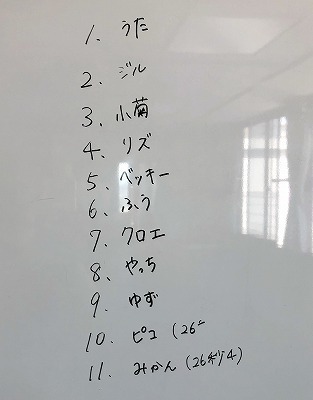 1. うた
2. ジル
3. 小菊
4. リズ
5. ベッキー
6. ふう
7. クロエ
8. やっち
9. ゆず
10. ピコ (26
11. みかん (26秒4)